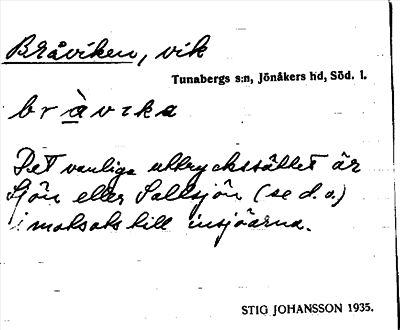 Bråviken, vik
Tunabergs s:n, Jönåkers hd, Söd. l.
bràvɩka
Det vanliga uttryckssättet är
Sjön eller Saltsjön (se d.o.)
i motsats till insjöarna.
STIG JOHANSSON 1935.